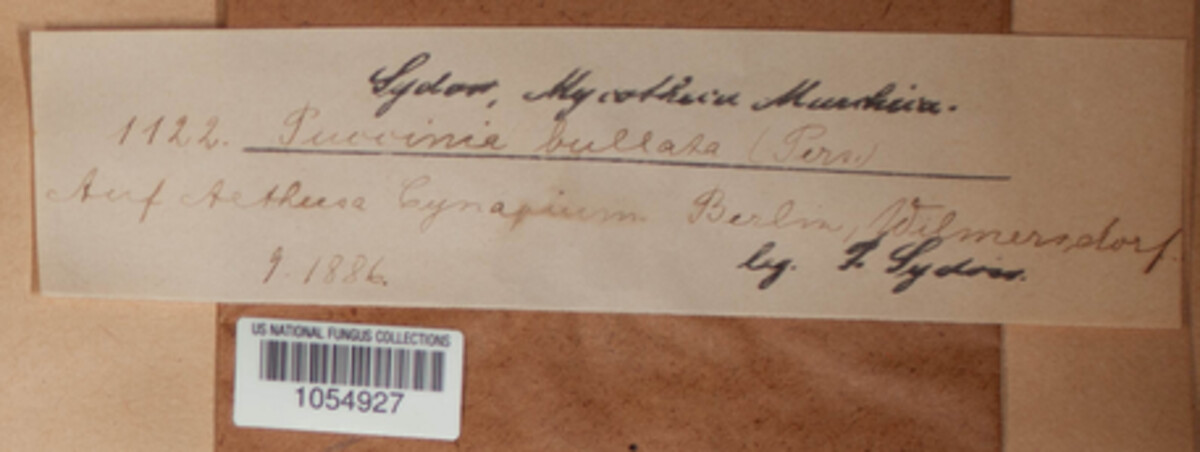 Sydow, Mycotheca Marchica.
1122. Puccinia bullata (Pers.)
Auf Aethusa Cynapium Berlin, Wilmersdorf.
9. 1886.
leg. P. Sydow.
US NATIONAL FUNGUS COLLECTIONS
1054927